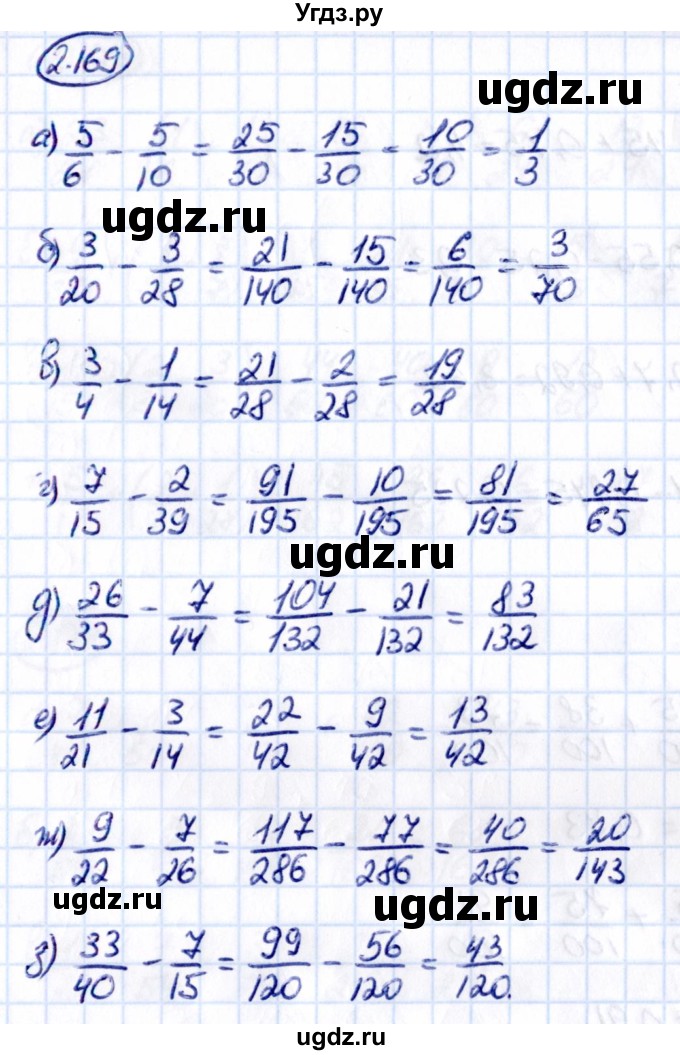 Угдз.ру
2.169
ugdz.ru
а) 5/6 - 5/10 = 25/30 - 15/30 = 10/30 = 1/3
ugdz.ru
б) 3/20 - 3/28 = 21/140 - 15/140 = 6/140 = 3/70
в) 3/4 - 1/14 = 21/28 - 2/28 = 19/28
г) 7/15 - 2/39 = 91/195 - 10/195 = 81/195 = 27/65
ugdz.ru
д) 26/33 - 7/44 = 104/132 - 21/132 = 83/132
е) 11/21 - 3/14 = 22/42 - 9/42 = 13/42
ж) 9/22 - 7/26 = 117/286 - 77/286 = 40/286 = 20/143
ugdz.ru
ugdz.ru
з) 33/40 - 7/15 = 99/120 - 56/120 = 43/120.
ugdz.ru